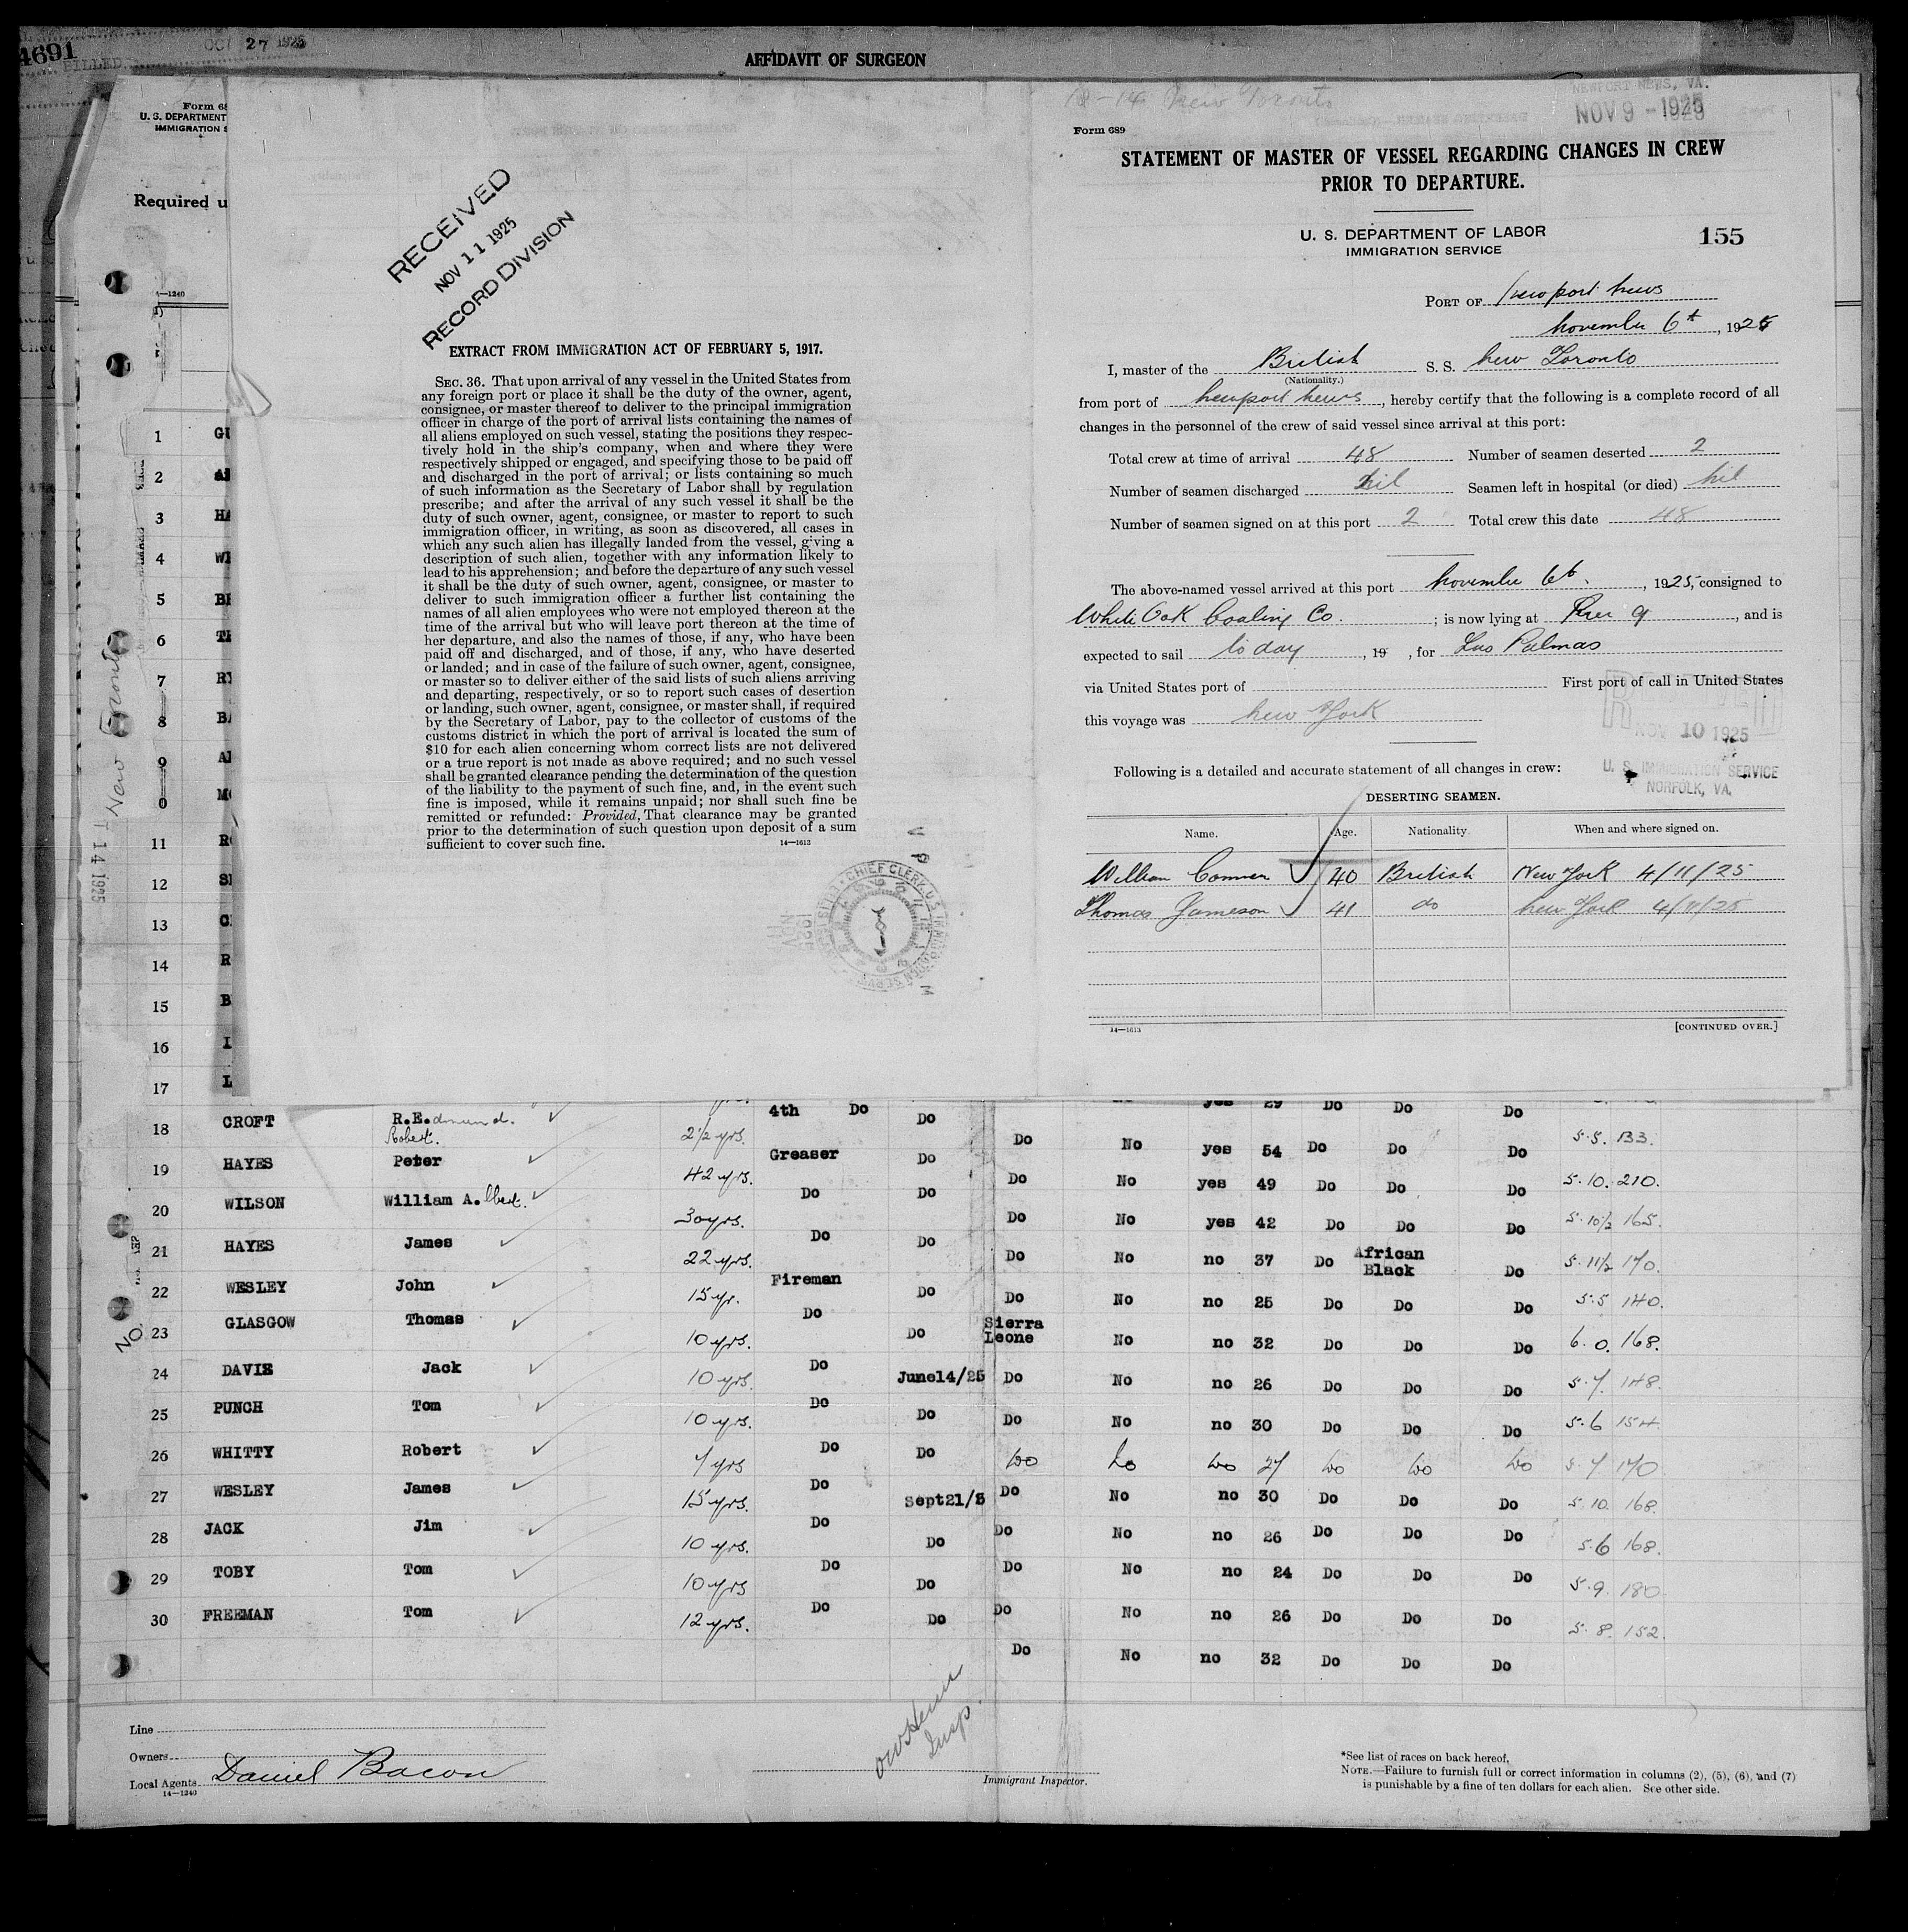 4691
OCT 27 1925
BILLED
AFFIDAVIT OF SURGEON
Form 68
U. S. DEPARTMENT
IMMIGRATION S
Required u
—1240
RECEIVED
NOV 11 1925
RECORD DIVISION
EXTRACT FROM IMMIGRATION ACT OF FEBRUARY 5, 1917.
SEC. 36. That upon arrival of any vessel in the United States from
any foreign port or place it shall be the duty of the owner, agent,
consignee, or master thereof to deliver to the principal immigration
officer in charge of the port of arrival lists containing the names of
all aliens employed on such vessel, stating the positions they respec-
tively hold in the ship's company, when and where they were
respectively shipped or engaged, and specifying those to be paid off
and discharged in the port of arrival; or lists containing so much
of such information as the Secretary of Labor shall by regulation
prescribe; and after the arrival of any such vessel it shall be the
duty of such owner, agent, consignee, or master to report to such
immigration officer, in writing, as soon as discovered, all cases in
which any such alien has illegally landed from the vessel, giving a
description of such alien, together with any information likely to
lead to his apprehension; and before the departure of any such vessel
it shall be the duty of such owner, agent, consignee, or master to
deliver to such immigration officer a further list containing the
names of all alien employees who were not employed thereon at the
time of the arrival but who will leave port thereon at the time of
her departure, and also the names of those, if any, who have been
paid off and discharged, and of those, if any, who have deserted
or landed; and in case of the failure of such owner, agent, consignee,
or master so to deliver either of the said lists of such aliens arriving
and departing, respectively, or so to report such cases of desertion
or landing, such owner, agent, consignee, or master shall, if required
by the Secretary of Labor, pay to the collector of customs of the
customs district in which the port of arrival is located the sum of
$10 for each alien concerning whom correct lists are not delivered
or a true report is not made as above required; and no such vessel
shall be granted clearance pending the determination of the question
of the liability to the payment of such fine, and, in the event such
fine is imposed, while it remains unpaid; nor shall such fine be
remitted or refunded: Provided, That clearance may be granted
prior to the determination of such question upon deposit of a sum
sufficient to cover such fine.
14—1613
18-14 New Toronto
NEWPORT NEWS, VA.
NOV 9 - 1925
Form 689
STATEMENT OF MASTER OF VESSEL REGARDING CHANGES IN CREW
PRIOR TO DEPARTURE.
U. S. DEPARTMENT OF LABOR
IMMIGRATION SERVICE
155
PORT OF Newport News
November 6th, 1925
I, master of the British S. S. New Toronto
(Nationality.)
from port of Newport News, hereby certify that the following is a complete record of all
changes in the personnel of the crew of said vessel since arrival at this port:
Total crew at time of arrival 48 Number of seamen deserted 2
Number of seamen discharged nil Seamen left in hospital (or died) nil
Number of seamen signed on at this port 2 Total crew this date 48
The above-named vessel arrived at this port November 6th., 1925, consigned to
White Oak Coaling Co.; is now lying at Pier 9, and is
expected to sail to day, 19 , for Las Palmas
via United States port of First port of call in United States
this voyage was New York
NOV 10 1925
U. S. IMMIGRATION SERVICE
NORFOLK, VA.
Following is a detailed and accurate statement of all changes in crew:
DESERTING SEAMEN.
Name. Age. Nationality. When and where signed on.
William Conner 40 British New York 4/11/25
Thomas Jameson 41 do New York 4/11/25
14—1613
[CONTINUED OVER.]
New Toronto
T 14 1925
1 GU
2 AR
3 HA
4 WI
5
6
7 RY
8 BA
9
0 MO
11 RO
12
13
14 R
15 B
16 I
17 L
yes 29 Do Do Do
18 CROFT R.E.dmund. 2½ yrs. 4th Do Do Do No yes 54 Do Do Do 5.5. 133.
Robert.
19 HAYES Peter 42 yrs. Greaser Do Do No yes 49 Do Do Do 5.10. 210.
20 WILSON William A.lbert. 30 yrs. Do Do Do No yes 42 Do Do Do 5.10½ 165.
21 HAYES James 22 yrs. Do Do Do No no 37 Do African Black Do 5.11½ 170.
22 WESLEY John 15 yr. Fireman Do Do No no 25 Do Do Do 5.5 140.
23 GLASGOW Thomas 10 yrs. Do Do Sierra Leone No no 32 Do Do Do 6.0. 168.
24 DAVIE Jack 10 yrs. Do June14/25 Do No no 26 Do Do Do 5.7. 148.
25 PUNCH Tom 10 yrs. Do Do Do No no 30 Do Do Do 5.6 154
26 WHITTY Robert 7 yrs Do Do Do No Do 27 Do Do Do 5.7 170
27 WESLEY James 15 yrs. Do Sept21/5 Do No no 30 Do Do Do 5.10. 168
28 JACK Jim 10 yrs. Do Do Do No no 26 Do Do Do 5.6 168.
29 TOBY Tom 10 yrs Do Do Do No no 24 Do Do Do 5.9. 180
30 FREEMAN Tom 12 yrs. Do Do Do No no 26 Do Do Do 5.8. 152.
Do No no 32 Do Do Do
Line
Owners
Local Agents Daniel Bacon
14—1240
Insp.
Immigrant Inspector.
*See list of races on back hereof,
NOTE.—Failure to furnish full or correct information in columns (2), (5), (6), and (7)
is punishable by a fine of ten dollars for each alien. See other side.